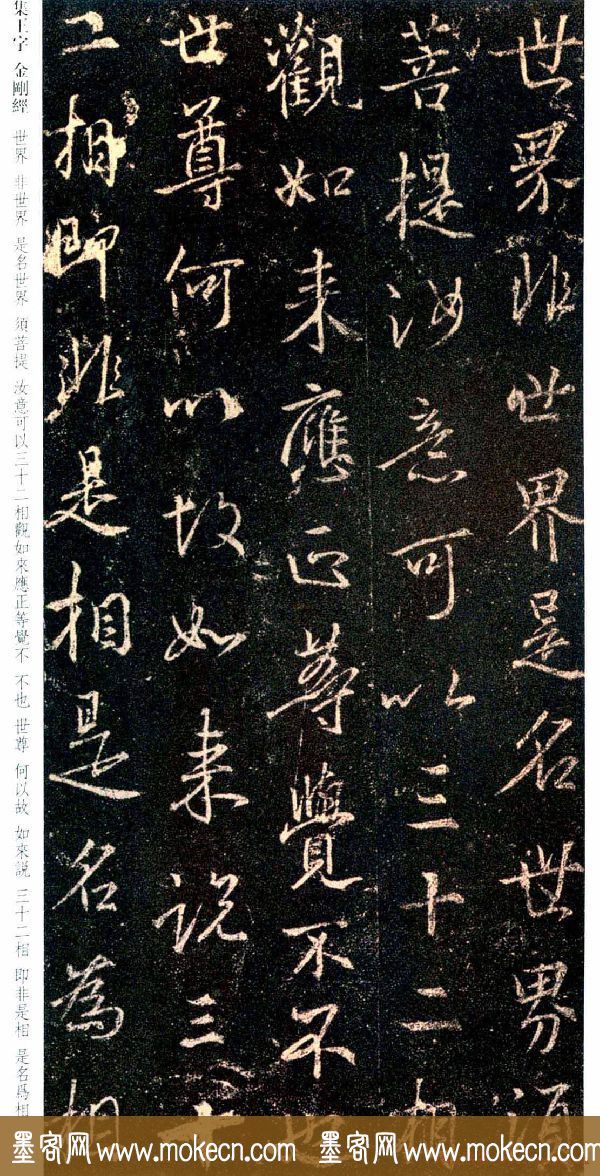 世界非世界是名世界須
菩提汝意可以三十二相
觀如来應正等覺不不也
世尊何以故如来説三十
二相即非是相是名為相
集王字 金剛經 世界 非世界 是名世界 須菩提 汝意可以三十二相觀如來應正等覺不 不也 世尊 何以故 如來説 三十二相 即非是相 是名爲相
墨客网 www.mokecn.com 墨客网 www.mokecn.com